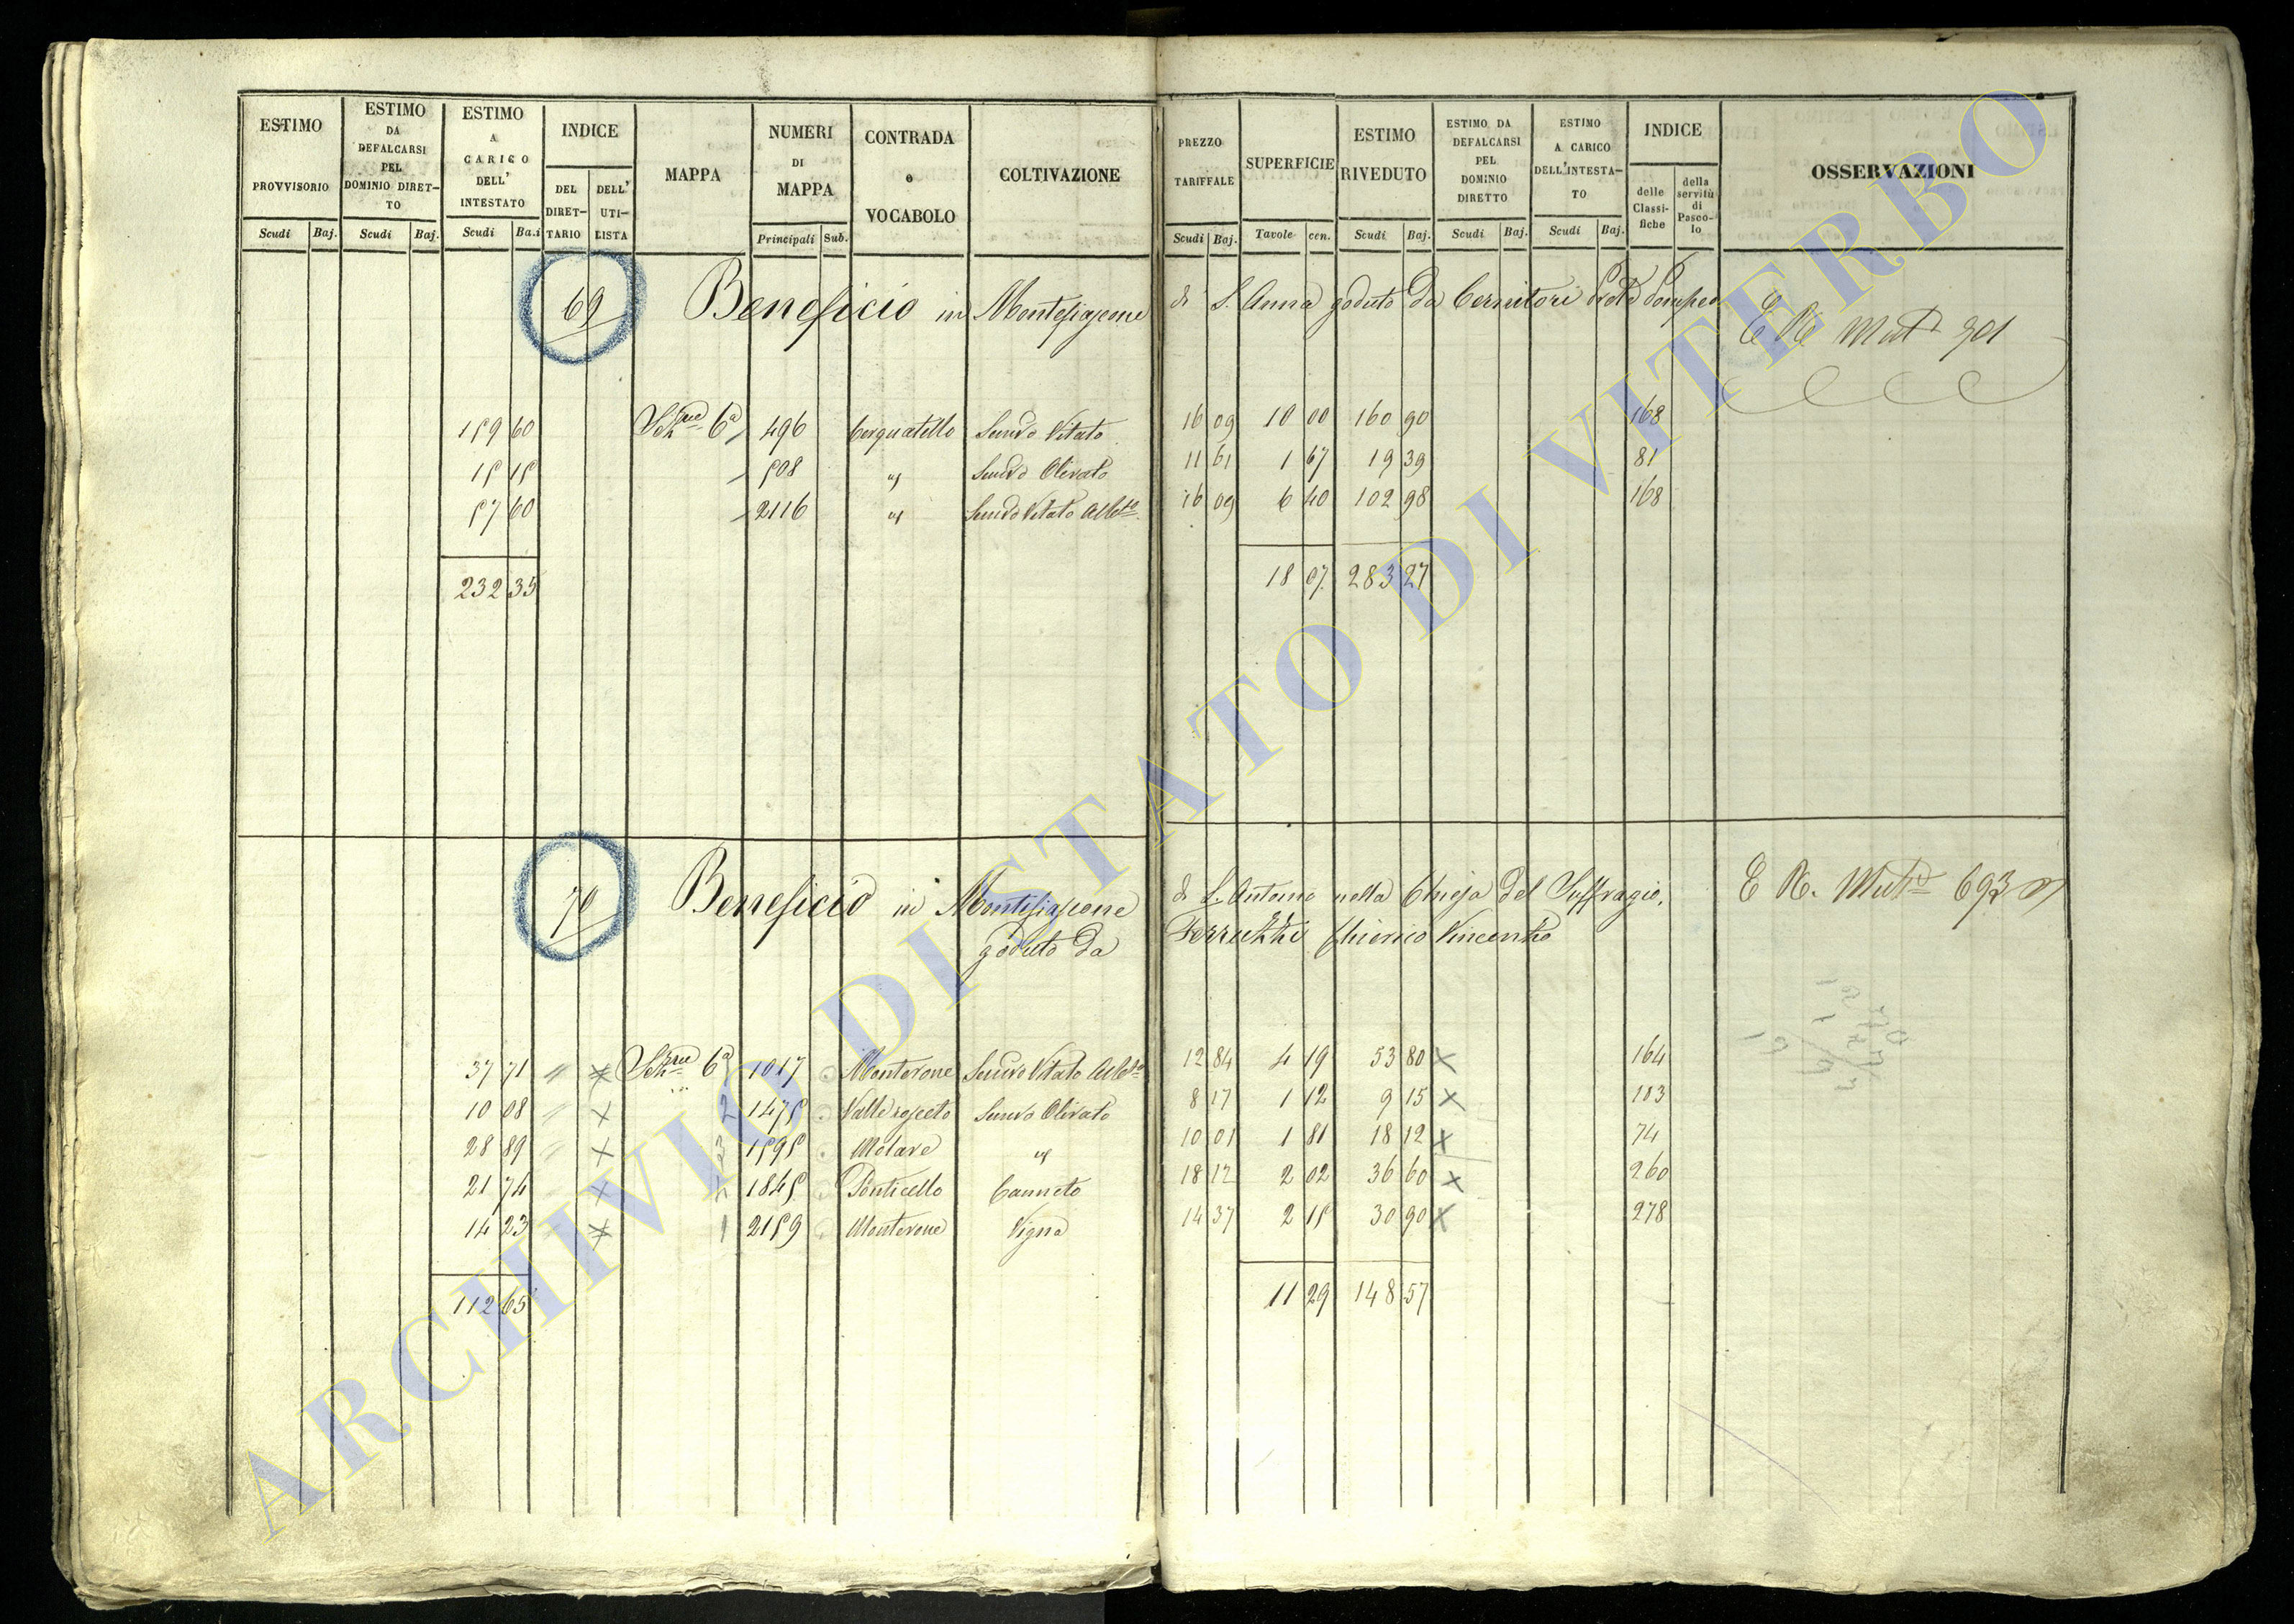 ESTIMO PROVVISORIO | ESTIMO DA DEFALCARSI PEL DOMINIO DIRETTO | ESTIMO A CARICO DELL' INTESTATO | INDICE DEL DIRETTARIO | DELL' UTILISTA | MAPPA | NUMERI DI MAPPA | CONTRADA o VOCABOLO | COLTIVAZIONE | PREZZO TARIFFALE | SUPERFICIE | ESTIMO RIVEDUTO | ESTIMO DA DEFALCARSI PEL DOMINIO DIRETTO | ESTIMO A CARICO DELL'INTESTATO | INDICE delle Classifiche | della servitù di Pascolo | OSSERVAZIONI
Scudi Baj. | Scudi Baj. | Scudi Ba.i | Principali Sub. | Scudi Baj. | Tavole cen. | Scudi Baj. | Scudi Baj. | Scudi Baj.
69 Beneficio in Montefiascone di S. Anna goduto da Cernitori
901
159 60 496 Cerquatello Semvo Vitato 16 09 10 00 160 90 168
15 15 508 " Semvo Olivato 11 61 1 67 19 39 81
57 60 2116 " Semvo Vitato Albto 16 09 6 40 102 98 168
232 35 18 07 283 27
70 Beneficio in Montefiascone di S. Antonio nella Chiesa del Suffragio,
goduto da Ferruzzi Chierico Vincenzo
693
37 71 6a 1017 Monterone Semvo Vitato Albto 12 84 4 19 53 80 × 164
10 08 × 2 1475 Semvo Olivato 8 17 1 12 9 15 × 103
28 89 × 3 1595 Molare " 10 01 1 81 18 12 × 74
21 74 × 1845 Ponticello Canneto 18 12 2 02 36 60 × 260
14 23 × 1 2159 Monterone Vigna 14 37 2 15 30 90 × 278
112 65 11 29 148 57
ARCHIVIO DI STATO DI VITERBO